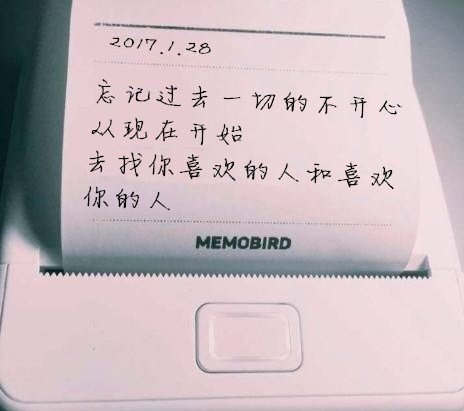 2017.1.28
忘记过去一切的不开心
从现在开始
去找你喜欢的人和喜欢
你的人
MEMOBIRD